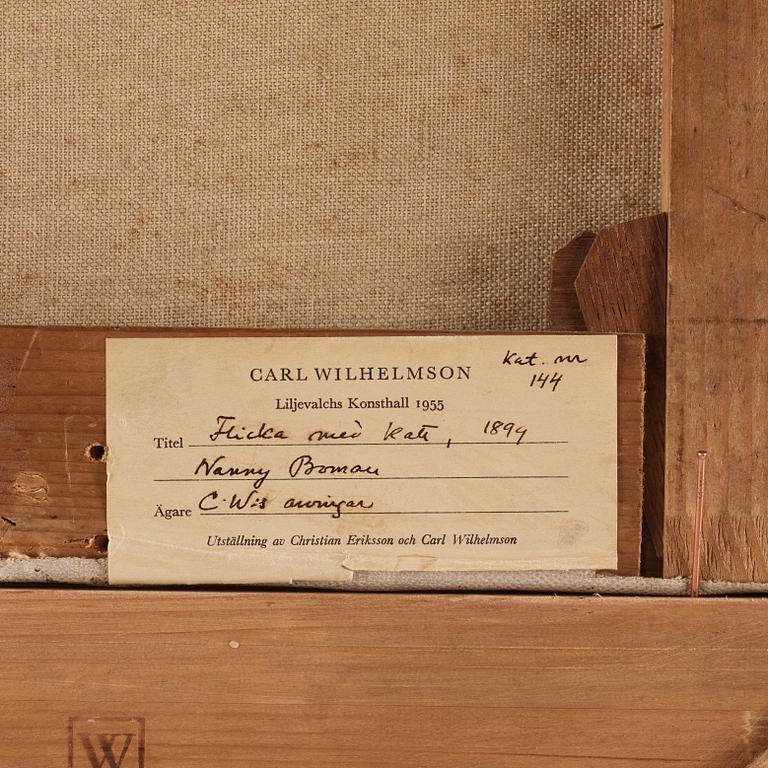 Kat. nr
144
CARL WILHELMSON
Liljevalchs Konsthall 1955
Titel Flicka med katt, 1899
Nanny Boman
Ägare C·W:s arvingar
Utställning av Christian Eriksson och Carl Wilhelmson
W